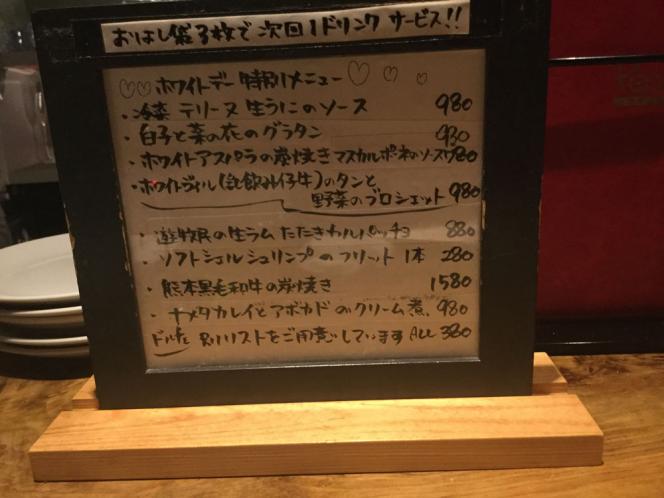 おはし袋3枚で次回1ドリンク サービス!!
♡♡ホワイトデー特別メニュー♡♡♡
・冷菜 テリーヌ 生うにのソース 980
・白子と菜の花のグラタン 930
・ホワイトアスパラの炭焼き マスカルポーネのソース 780
・ホワイトヴィル(乳飲み仔牛)のタンと
野菜のブロシェット 980
・遊牧民の生ラム たたきカルパッチョ 880
・ソフトシェルシュリンプのフリット 1本 280
・熊本黒毛和牛の炭焼き 1580
・ナメタカレイとアボカドのクリーム煮 980
ドルチェ 別リストをご用意しています ALL 380